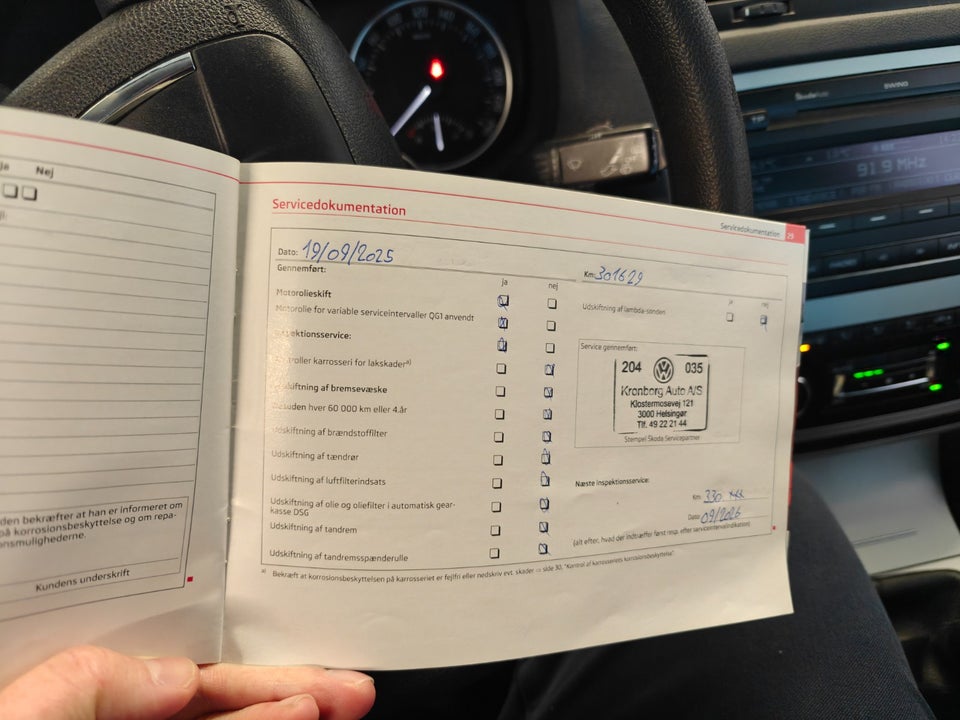 Ja Nej
den bekræfter at han er informeret om
på korrosionsbeskyttelse og om repa-
onsmulighederne.
Kundens underskrift
Servicedokumentation
Servicedokumentation 29
Dato: 19/09/2025
Km: 301629
Gennemført:
ja nej
Motorolieskift
Motorolie for variable serviceintervaller QG1 anvendt
ektionsservice:
troller karrosseri for lakskader a)
skiftning af bremsevæske
esuden hver 60 000 km eller 4. år
Udskiftning af brændstoffilter
Udskiftning af tændrør
Udskiftning af luftfilterindsats
Udskiftning af olie og oliefilter i automatisk gear-
kasse DSG
Udskiftning af tandrem
Udskiftning af tandremsspænderulle
a) Bekræft at korrosionsbeskyttelsen på karrosseriet er fejlfri eller nedskriv evt. skader ⇨ side 30, "Kontrol af karrosseriets korrosionsbeskyttelse".
ja nej
Udskiftning af lambda-sonden
Service gennemført:
204 035
Kronborg Auto A/S
Klostermosevej 121
3000 Helsingør
Tlf. 49 22 21 44
Stempel Škoda Servicepartner
Næste Inspektionsservice:
Km: 330 xxx
Dato: 09/2026
(alt efter, hvad der indtræffer først resp. efter serviceintervalindikation)
SWING
TP
91.9 MHz